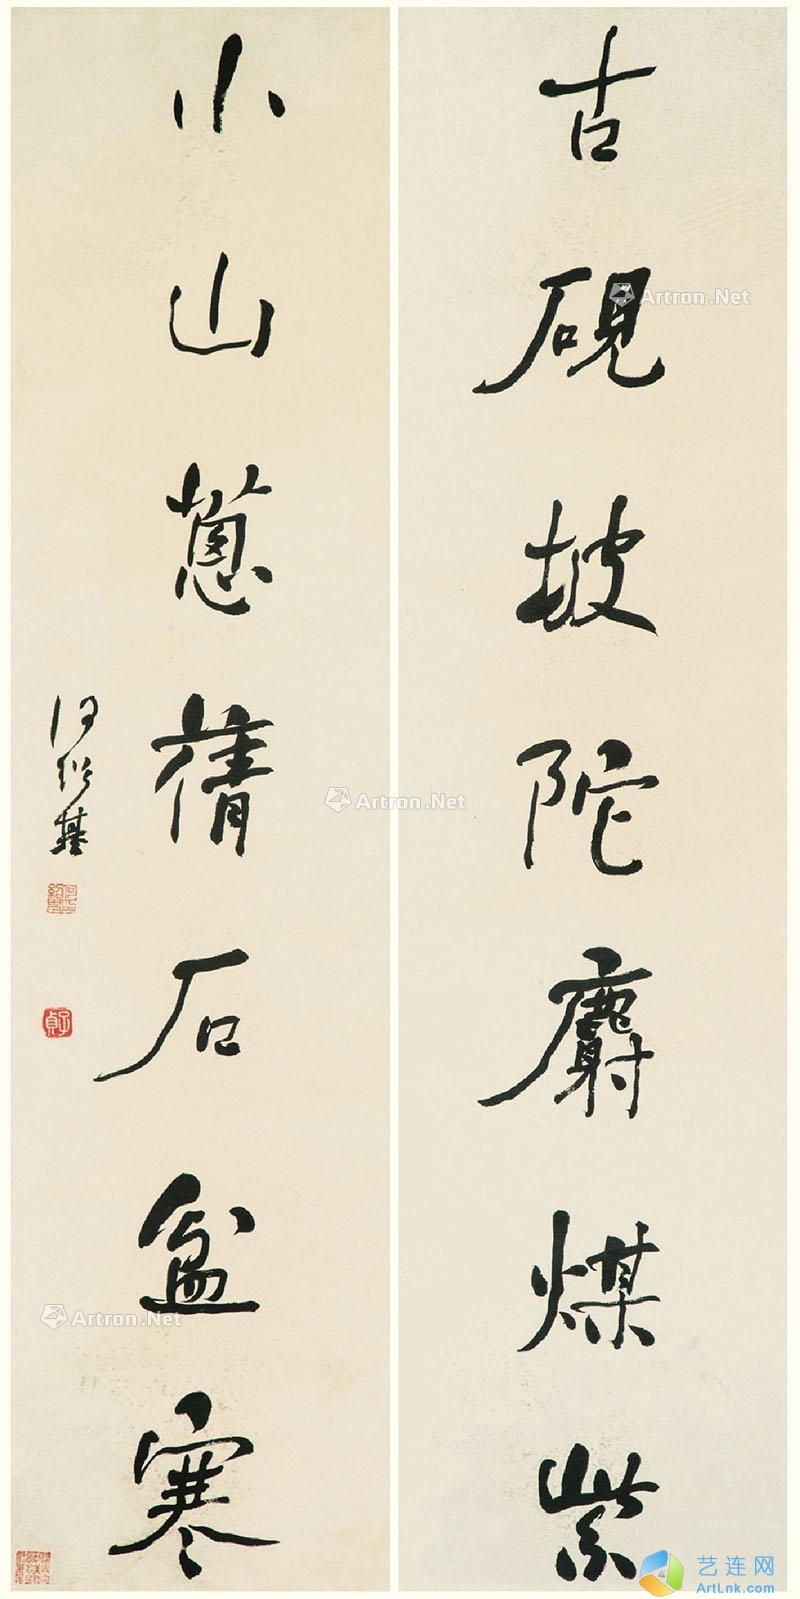 古硯坡陀麝煤紫
小山蔥蒨石盆寒
何紹基
子貞
Artron.Net
Artron.Net
Artron.Net
艺连网
ArtLnk.com